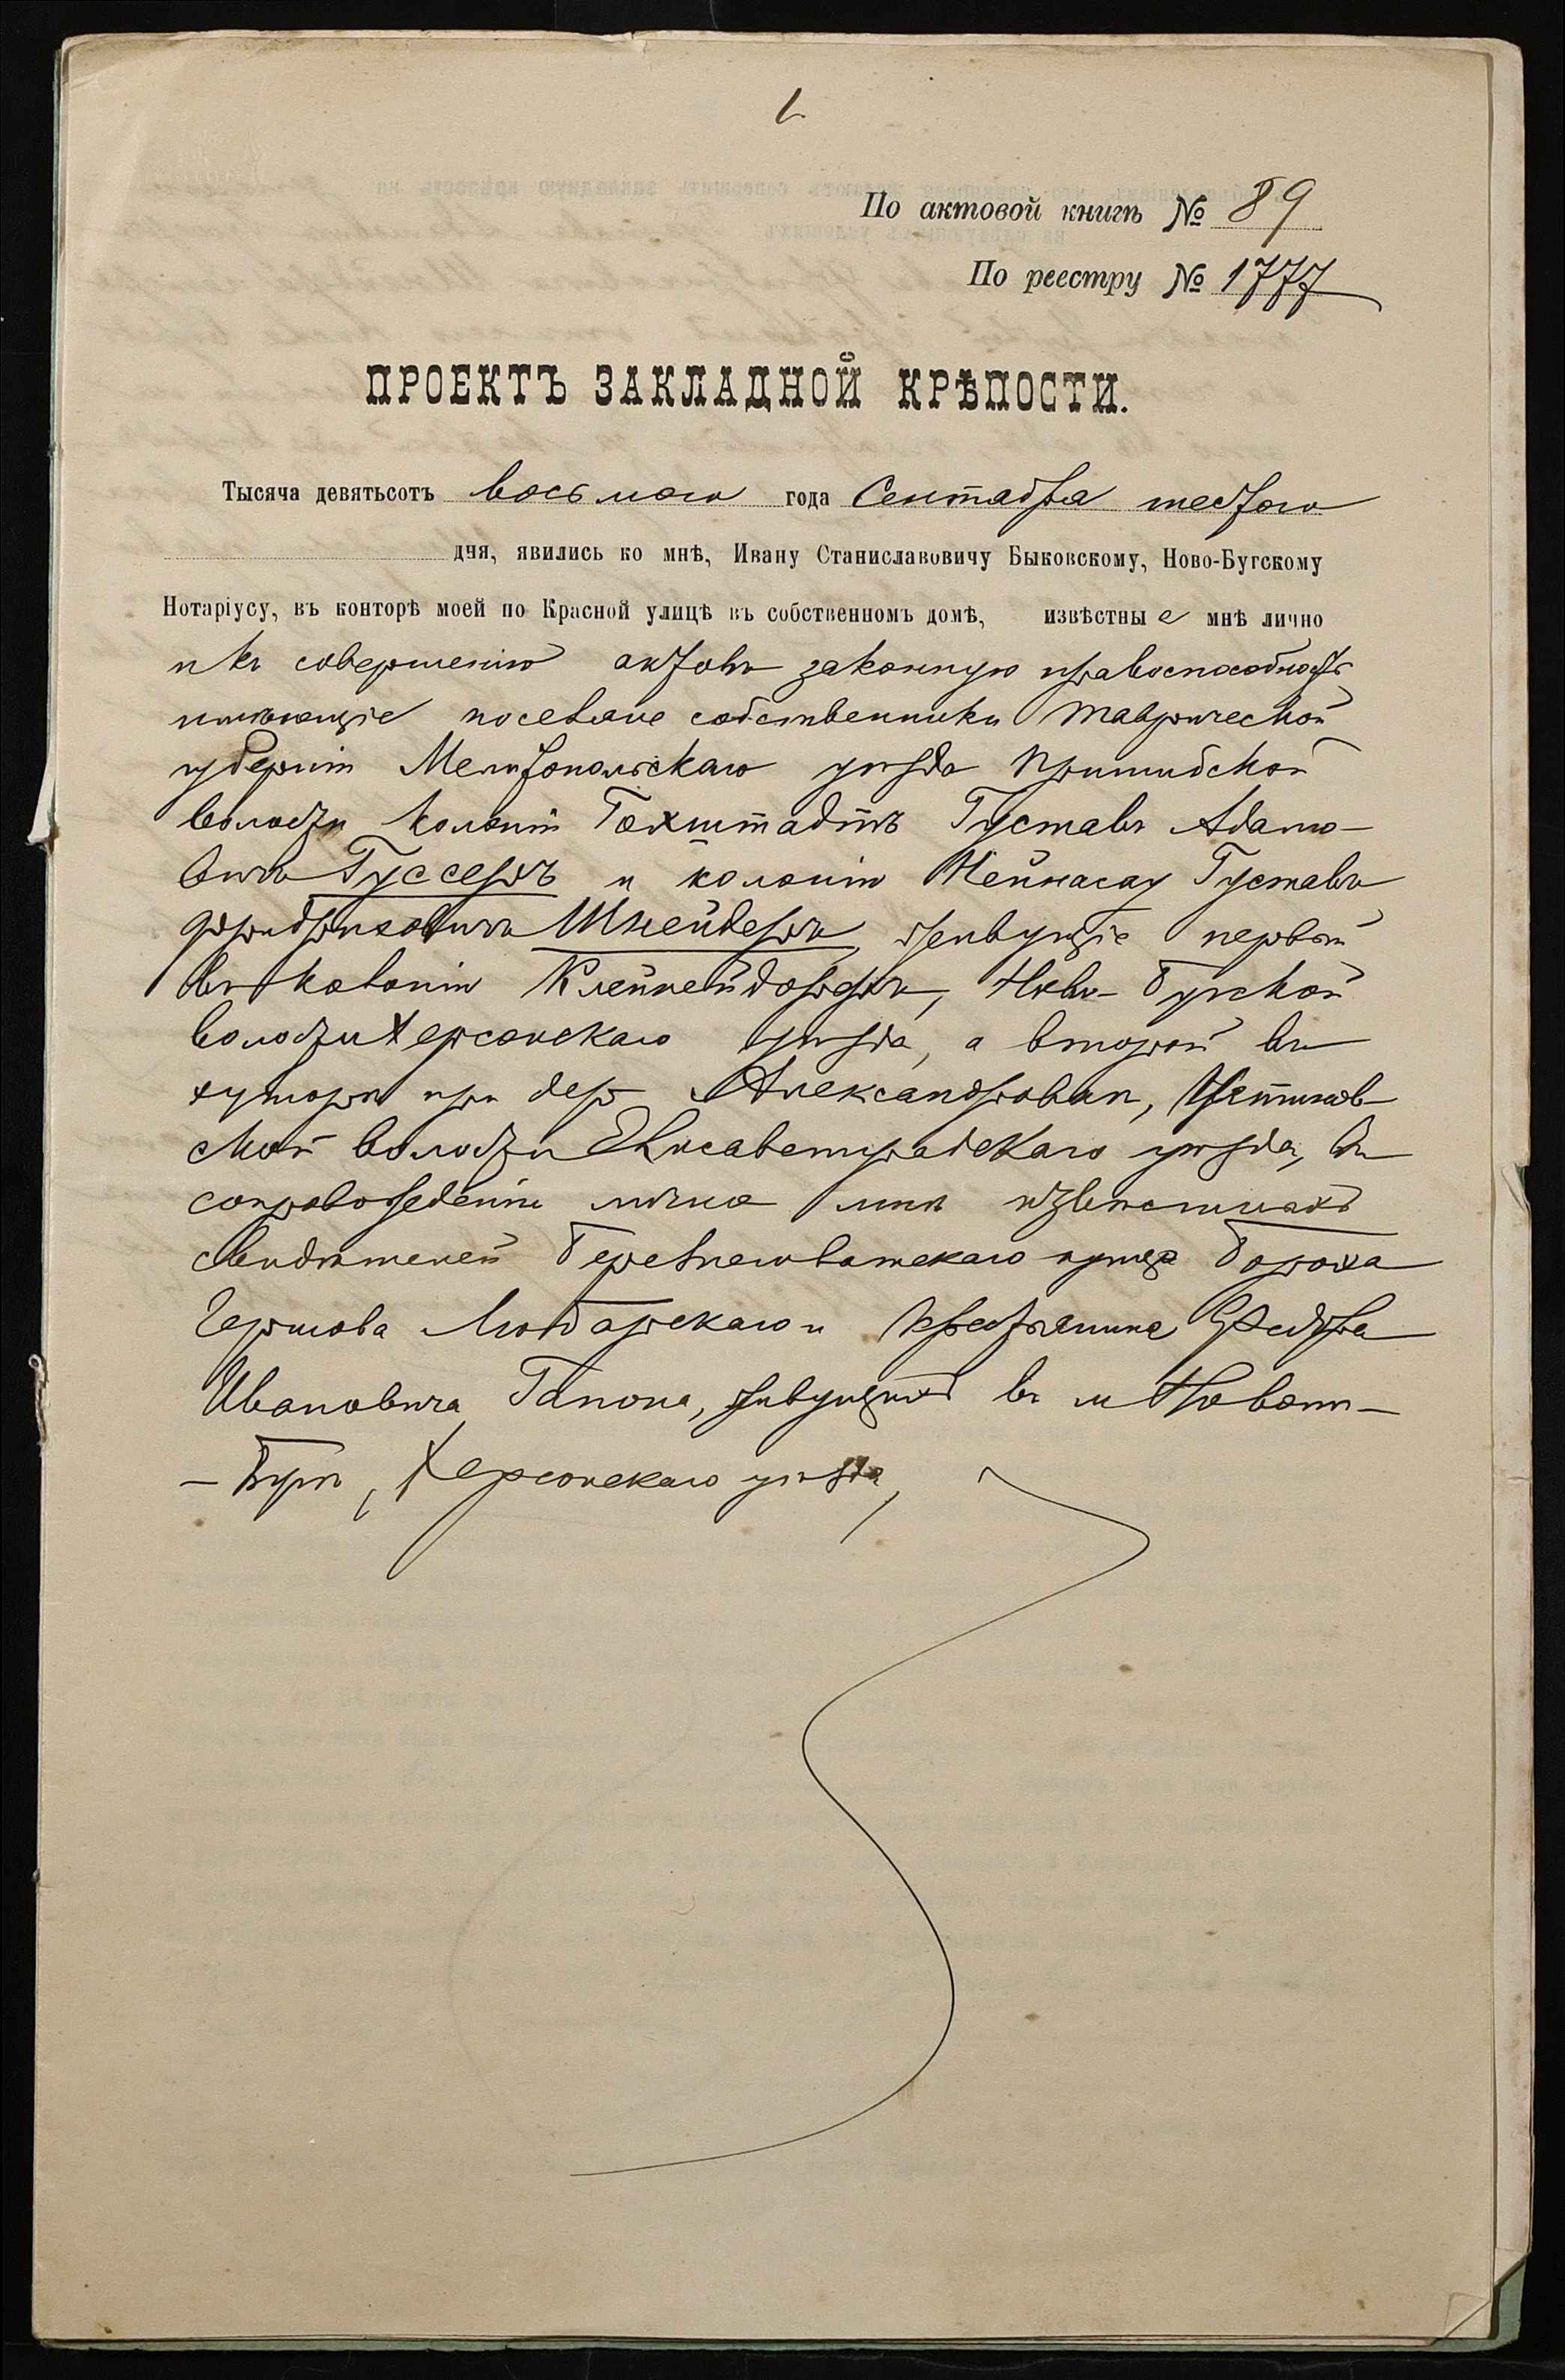 1
По актовой книгѣ № 89
По реестру № 1777
ПРОЕКТЪ ЗАКЛАДНОЙ КРѢПОСТИ.
Тысяча девятьсотъ восьмого года Сентября шестого
дня, явились ко мнѣ, Ивану Станиславовичу Быковскому, Ново-Бугскому
Нотаріусу, въ конторѣ моей по Красной улицѣ въ собственномъ домѣ, извѣстные мнѣ лично
и къ совершенію актовъ законную правоспособность
имѣющіе поселяне собственники Таврической
губерніи Мелитопольскаго уѣзда Пришибской
волости колоніи Гохштадтъ Густавъ Адамо-
вичъ Гуссеръ и колоніи Нейнасау Густавъ
Фридриховичъ Шнейдеръ, живущіе первый
въ колоніи Клейнейдорфъ, Ново-Бугской
волости Херсонскаго уѣзда, а второй въ
хуторѣ при дер. Александровкѣ,
ской волости Елисаветградскаго уѣзда, въ
сопровожденіи лично мнѣ извѣстныхъ
свидѣтелей Березнеговатскаго купца Бороха
Гершова Любарскаго и крестьянина Федора
Ивановича Гапона, живущихъ въ м. Новомъ-
-Бугѣ, Херсонскаго уѣзда,